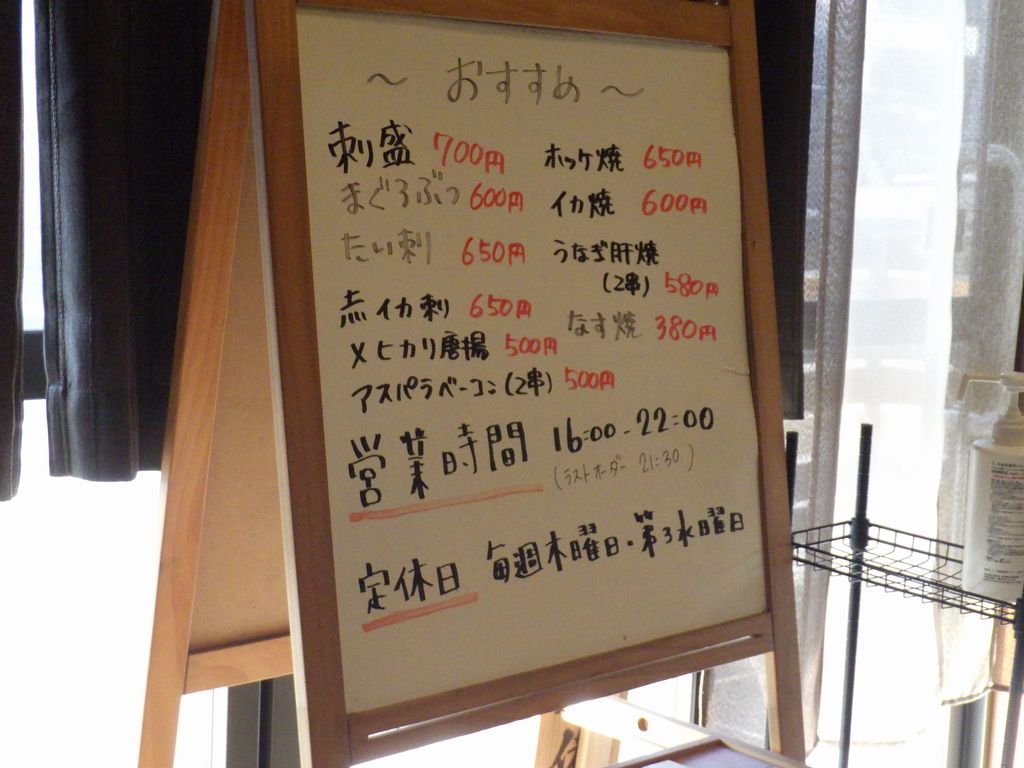 ～ おすすめ ～
刺盛 700円
まぐろぶつ 600円
たい刺 650円
点イカ刺 650円
メヒカリ唐揚 500円
アスパラベーコン(2串) 500円
ホッケ焼 650円
イカ焼 600円
うなぎ肝焼
(2串) 580円
なす焼 380円
営業時間 16:00-22:00
(ラストオーダー 21:30)
定休日 毎週木曜日・第3水曜日